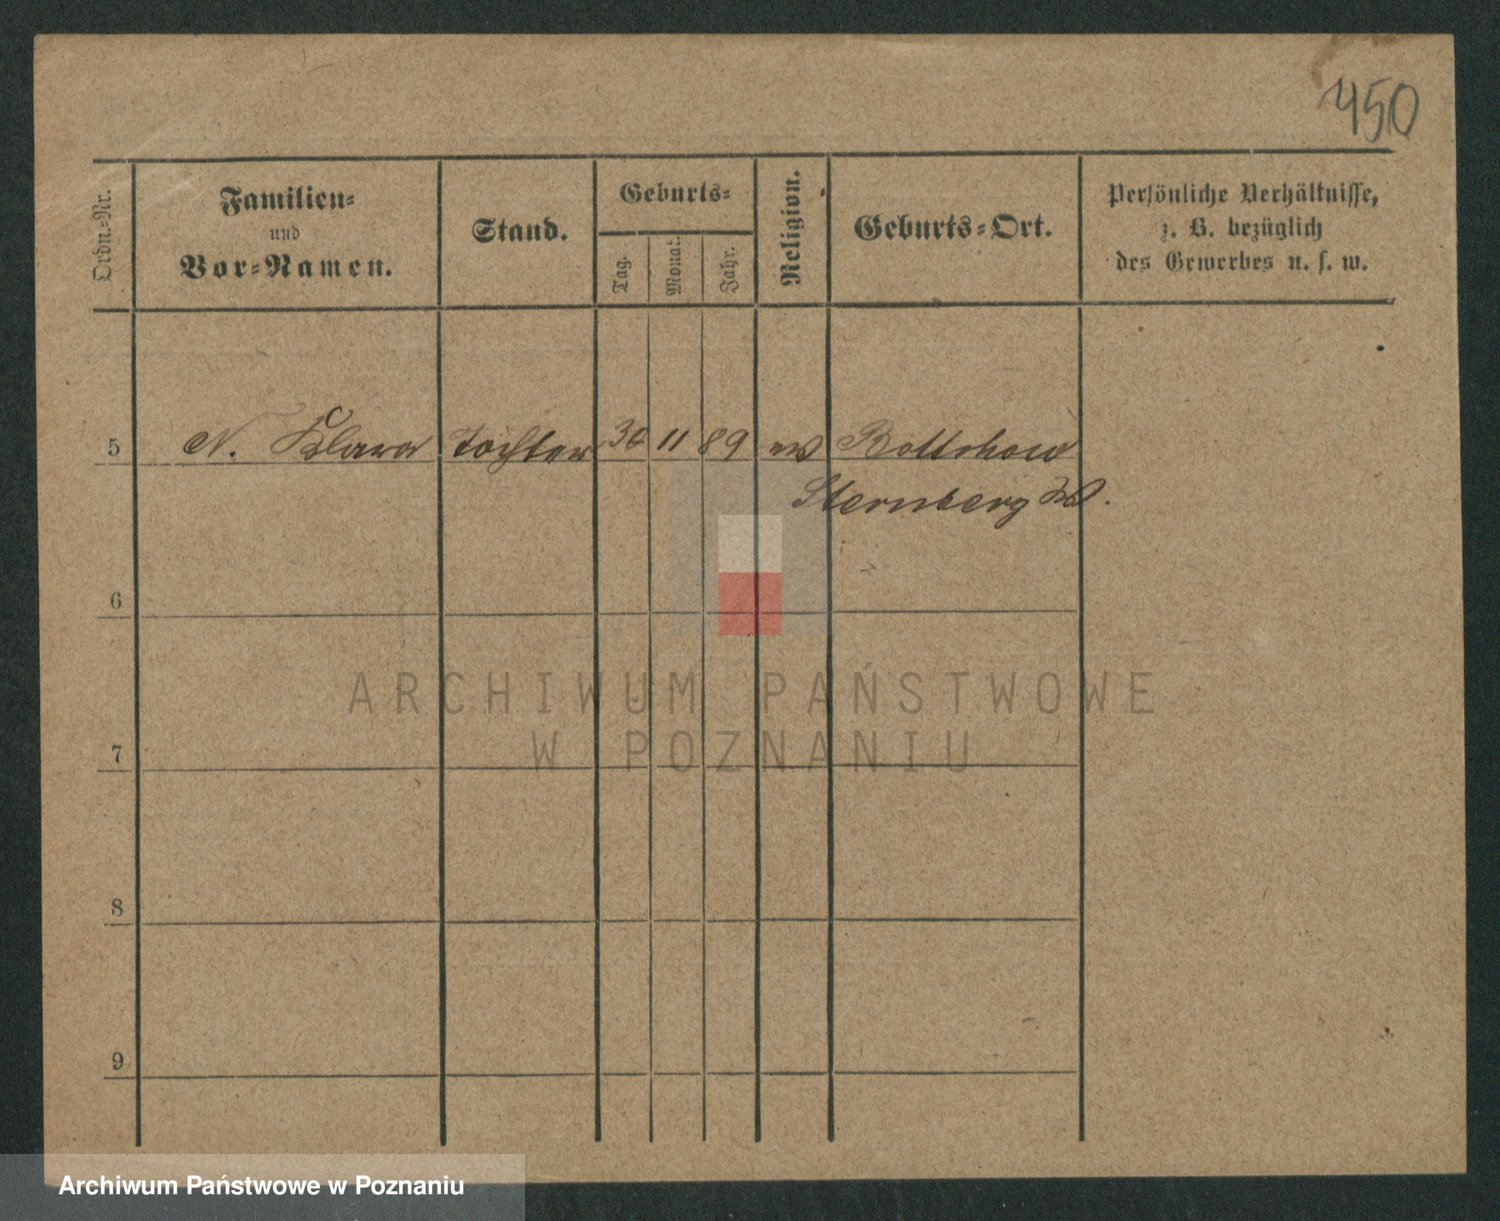 450
Ordn.-Nr.
Familien-
und
Vor-Namen.
Stand.
Geburts-
Tag.
Monat.
Jahr.
Religion.
Geburts-Ort.
Persönliche Verhältnisse,
z. B. bezüglich
des Gewerbes u. s. w.
5 N. Klara Tochter 30 11 89 ev
Sternberg
6
ARCHIWUM PAŃSTWOWE
W POZNANIU
7
8
9
Archiwum Państwowe w Poznaniu